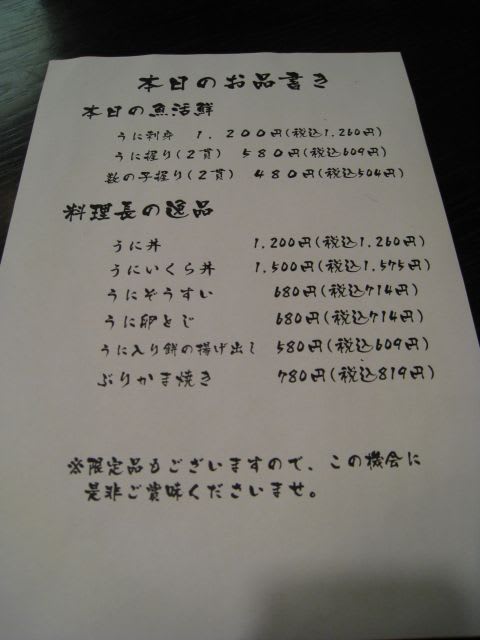 本日のお品書き
本日の魚活鮮
うに刺身 1.200円(税込1.260円)
うに握り(2貫) 580円(税込609円)
数の子握り(2貫) 480円(税込504円)
料理長の逸品
うに丼 1.200円(税込1.260円)
うにいくら丼 1.500円(税込1.575円)
うにぞうすい 680円(税込714円)
うに卵とじ 680円(税込714円)
うに入り餅の揚げ出し 580円(税込609円)
ぶりかま焼き 780円(税込819円)
※限定品もございますので、この機会に
是非ご賞味くださいませ。